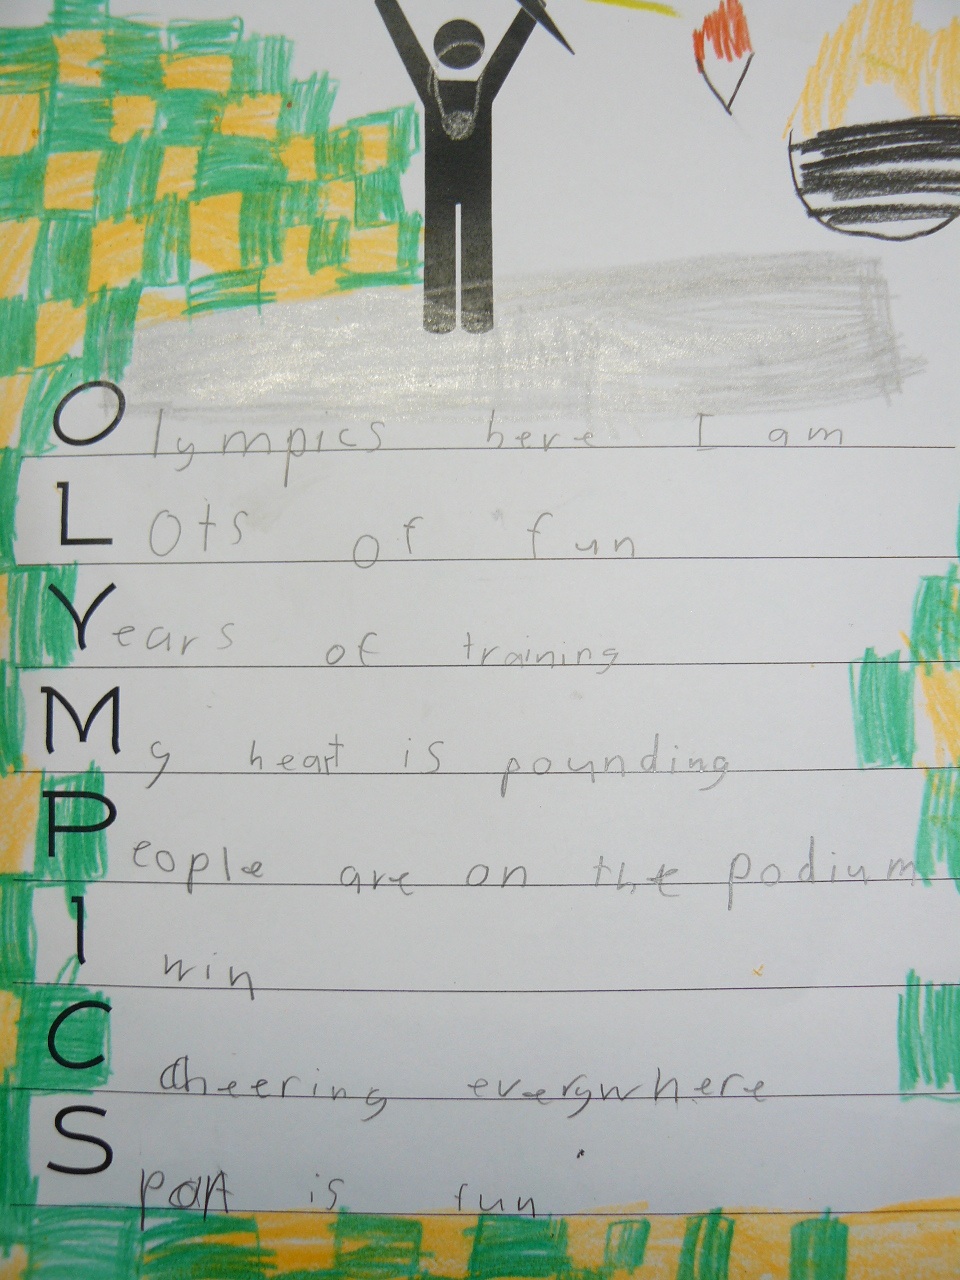 Olympics here I am
Lots of fun
Years of training
My heart is pounding
People are on the podium
I win
Cheering everywhere
Sport is fun